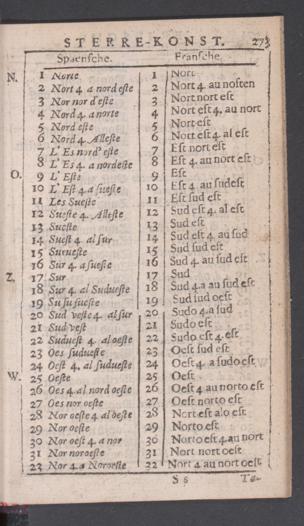 STERRE-KONST. 273
Spaensche. Fransche.
N. 1 Norte 1 Nort
2 Nort 4 a nord este 2 Nort 4. au nosten
3 Nor nor d'este 3 Nort nort est
4 Nord 4. a norte 4 Nort est 4. au nort
5 Nord este 5 Nort est
6 Nord 4. Alleste 6 Nort est 4. al est
7 L' Es nord' este 7 Est nort est
8 L' Es 4. a nordeste 8 Est 4. au nort est
O. 9 L' Este 9 Est
10 L' Est 4 a sueste 10 Est 4 au sudest
11 Les Sueste 11 Est sud est
12 Sueste 4. Alleste 12 Sud est 4. al est
13 Sueste 13 Sud est
14 Suest 4. al sur 14 Sud est 4. au sud
15 Surueste 15 Sud sud est
16 Sur 4. a sueste 16 Sud 4. au sud est
Z. 17 Sur 17 Sud
18 Sur 4. al Sudueste 18 Sud 4.a au sud est
19 Su su sueste 19 Sud sud oest
20 Sud veste 4. al sur 20 Sudo 4.a sud
21 Sud vest 21 Sudo est
22 Suduest 4. al oeste 22 Sudo est 4. est
23 Oes sudueste 23 Oest sud est
24 Oest 4. al sudueste 24 Oest 4. a sudo est
W. 25 Oeste 25 Oest
26 Oes 4. al nord oeste 26 Oest 4 au norto est
27 Oes nor oeste 27 Oest norto est
28 Nor oeste 4. al oeste 28 Nort est alo est
29 Nor oeste 29 Norto est
30 Nor oest 4. a nor 30 Norto est 4. au nort
31 Nor noroeste 31 Nort nort oest
23 Nor 4. a Noroeste 22 Nort 4 au nort oest
S 6